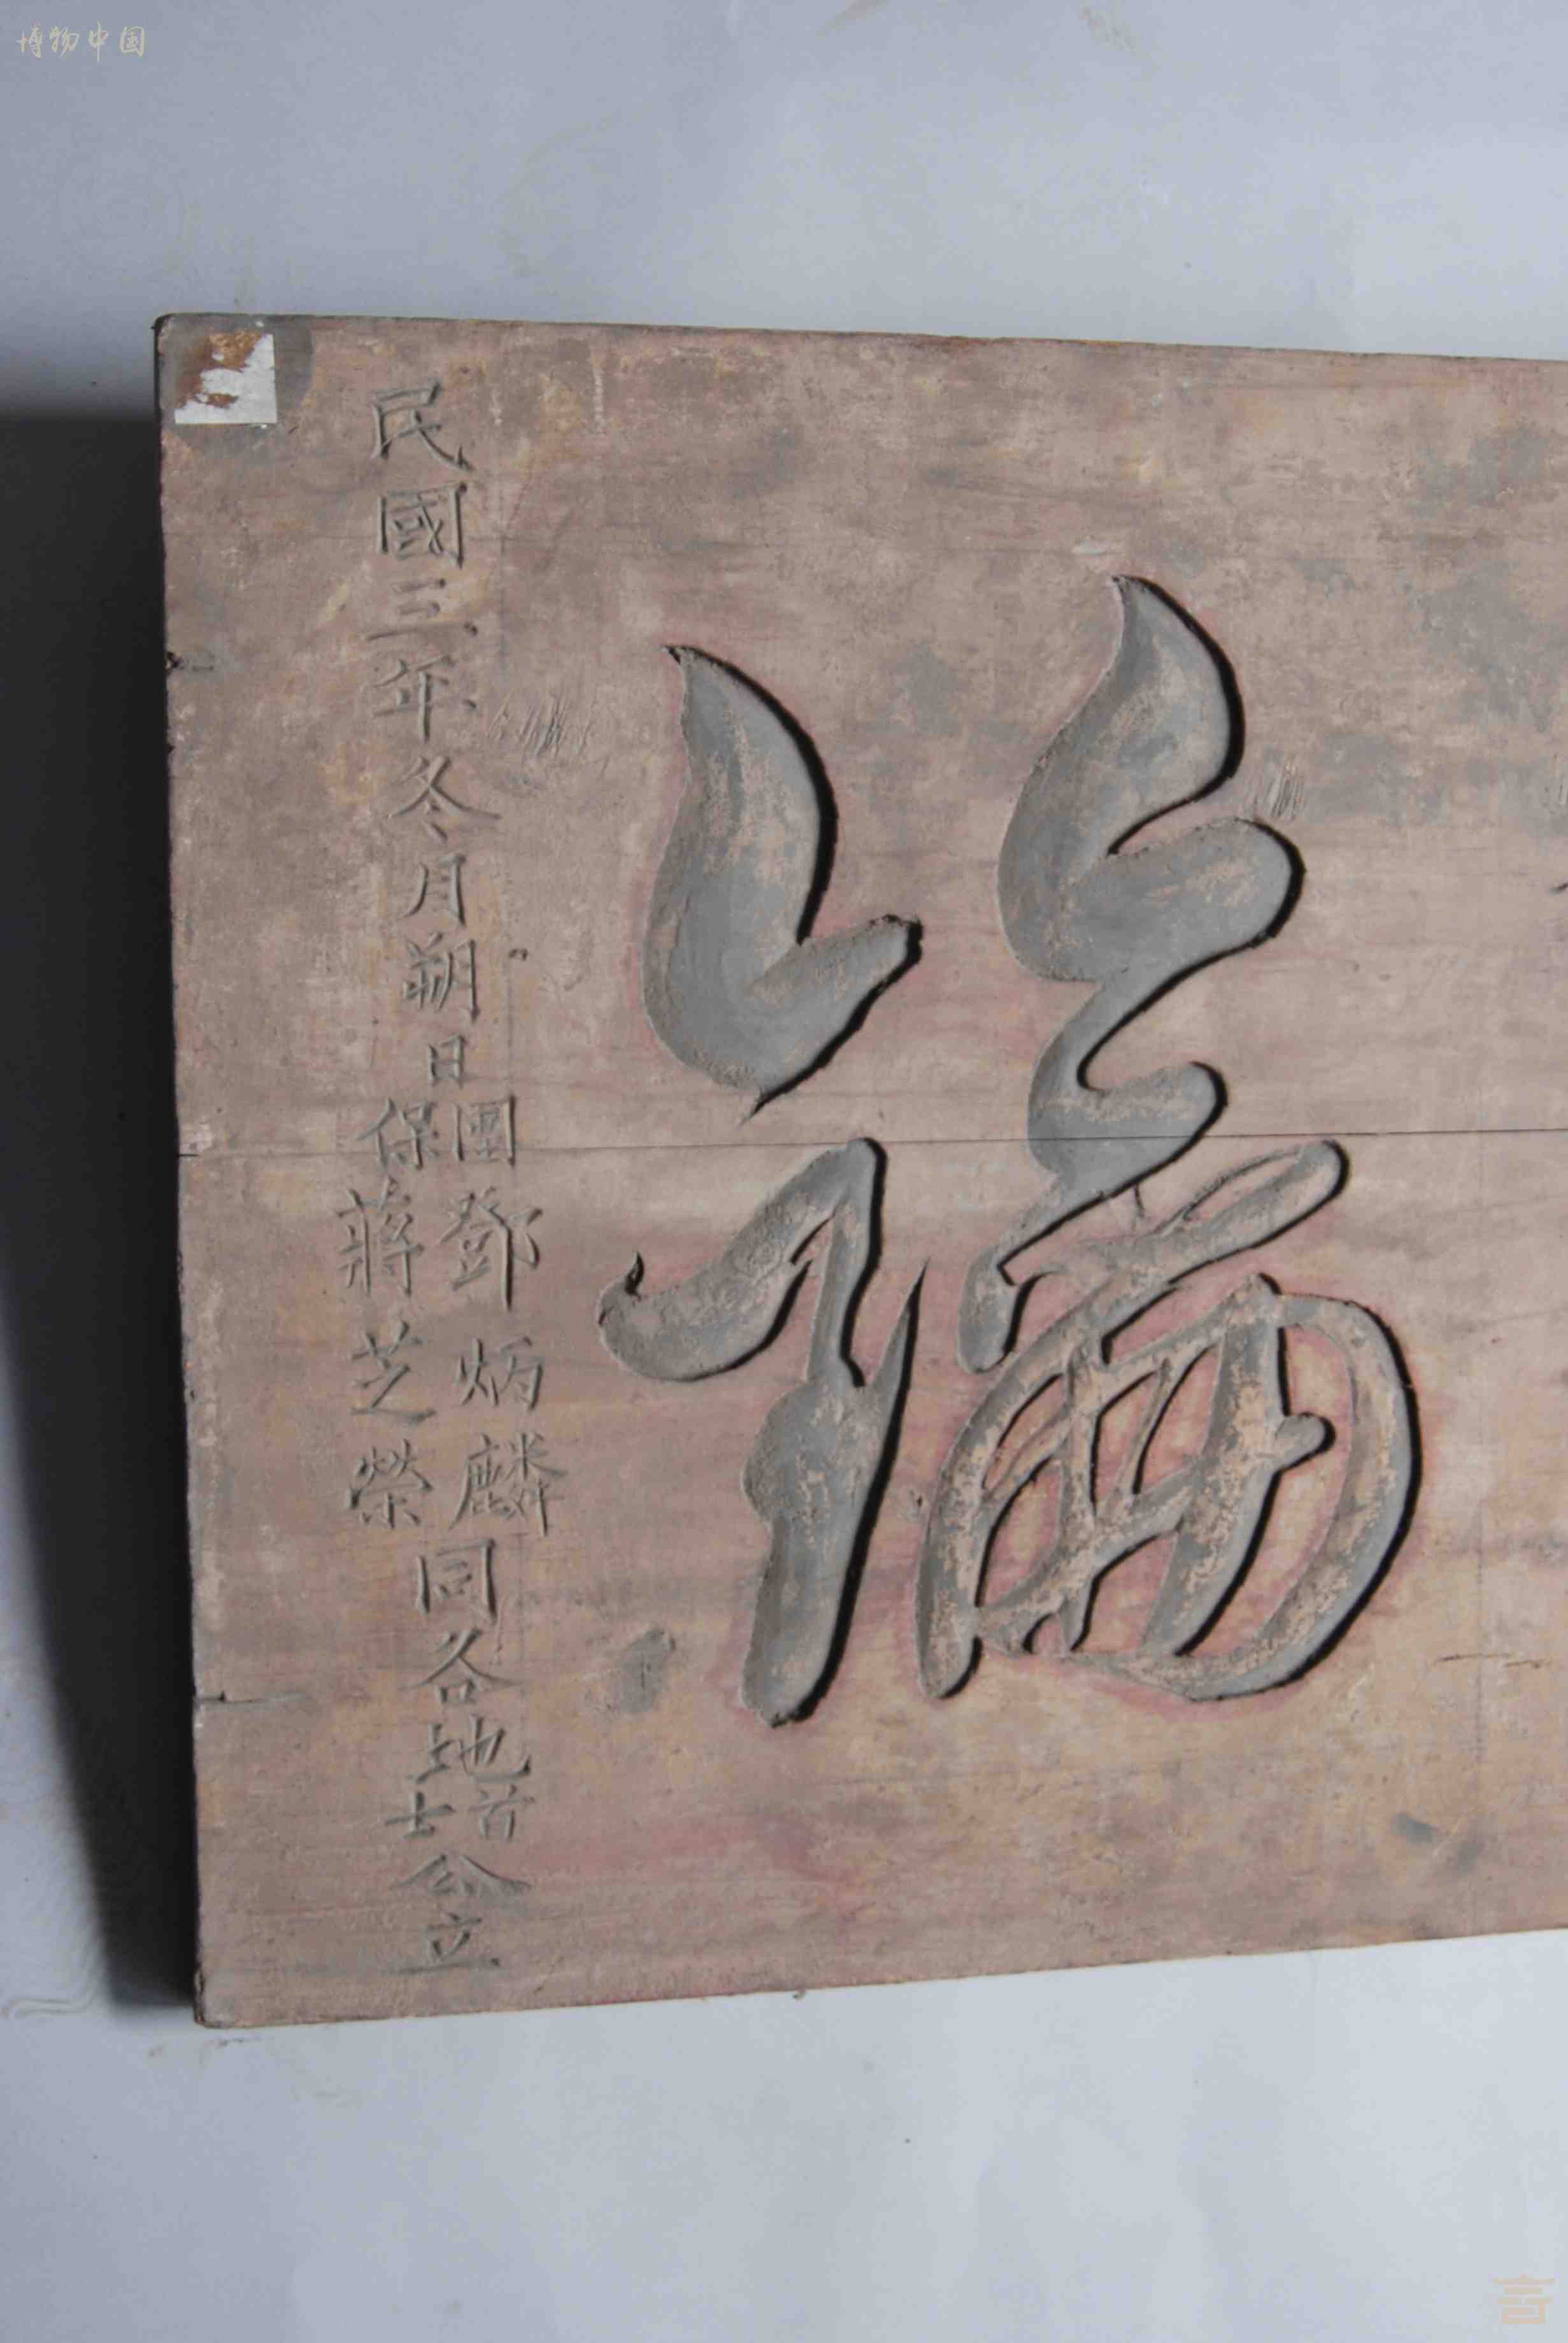 博物中国
民國三年冬月朔日
團鄧炳麟
保蔣芝榮
同各地首士公立